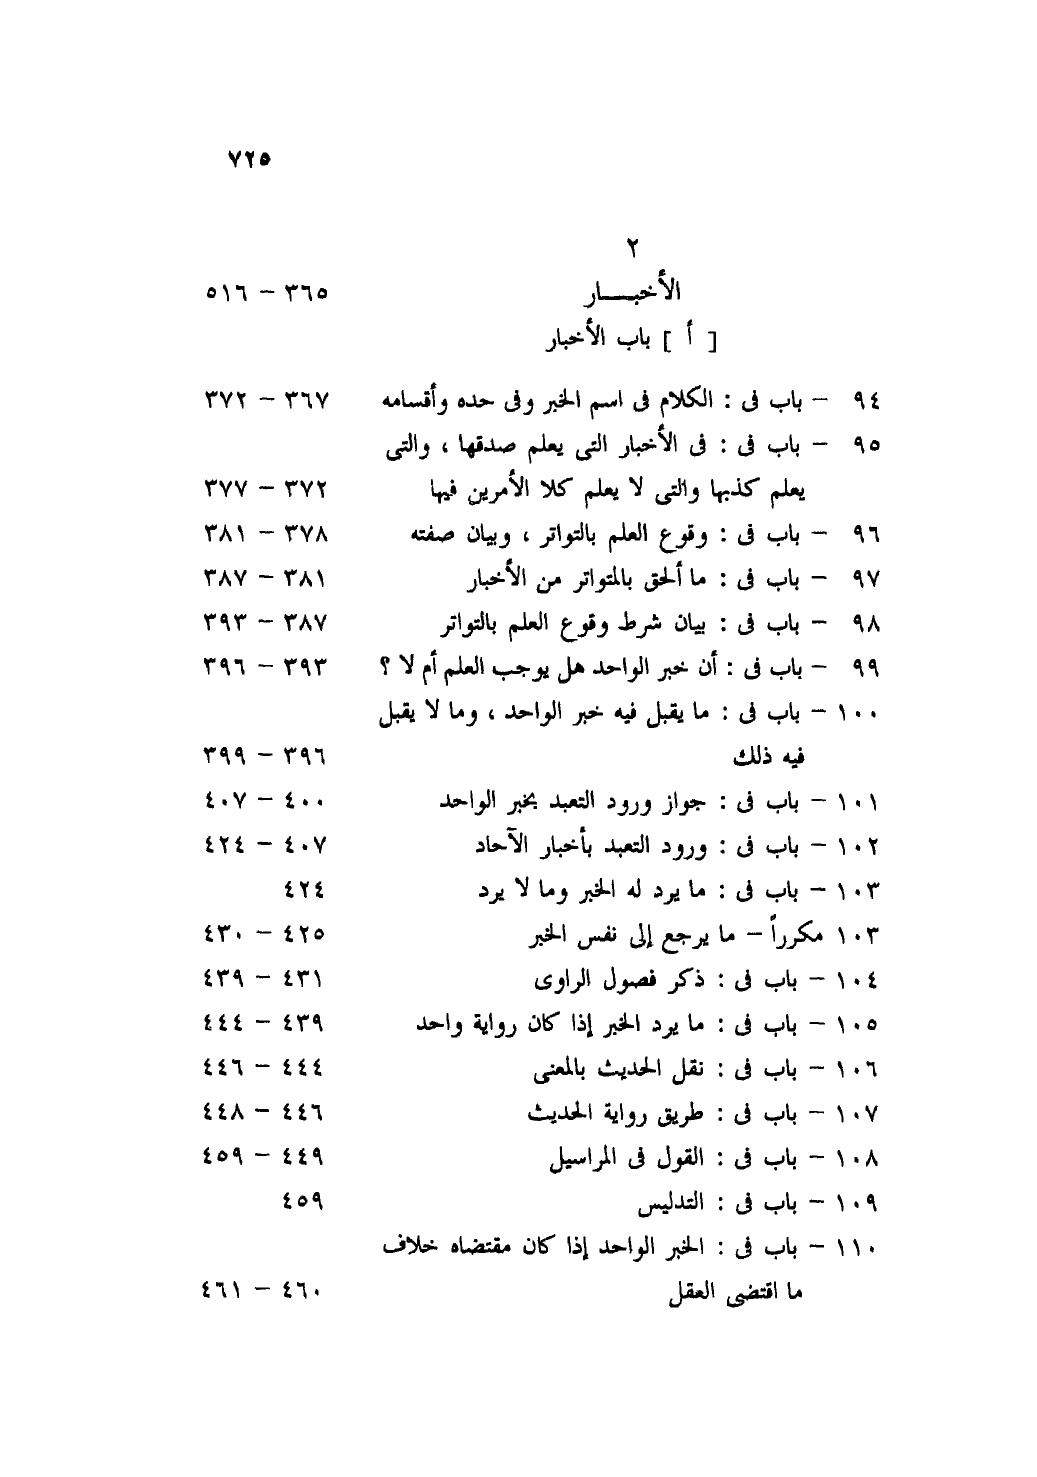 ٧٢٥
٢
الأخبـــار ٣٦٥ – ٥١٦
[ أ ] باب الأخبار
٩٤ – باب فى : الكلام فى اسم الخبر وفى حده وأقسامه ٣٦٧ – ٣٧٢
٩٥ – باب فى : فى الأخبار التى يعلم صدقها ، والتى
يعلم كذبها والتى لا يعلم كلا الأمرين فيها ٣٧٢ – ٣٧٧
٩٦ – باب فى : وقوع العلم بالتواتر ، وبيان صفته ٣٧٨ – ٣٨١
٩٧ – باب فى : ما ألحق بالمتواتر من الأخبار ٣٨١ – ٣٨٧
٩٨ – باب فى : بيان شرط وقوع العلم بالتواتر ٣٨٧ – ٣٩٣
٩٩ – باب فى : أن خبر الواحد هل يوجب العلم أم لا ؟ ٣٩٣ – ٣٩٦
١٠٠ – باب فى : ما يقبل فيه خبر الواحد ، وما لا يقبل
فيه ذلك ٣٩٦ – ٣٩٩
١٠١ – باب فى : جواز ورود التعبد بخبر الواحد ٤٠٠ – ٤٠٧
١٠٢ – باب فى : ورود التعبد بأخبار الآحاد ٤٠٧ – ٤٢٤
١٠٣ – باب فى : ما يرد له الخبر وما لا يرد ٤٢٤
١٠٣ مكرراً – ما يرجع إلى نفس الخبر ٤٢٥ – ٤٣٠
١٠٤ – باب فى : ذكر فصول الراوى ٤٣١ – ٤٣٩
١٠٥ – باب فى : ما يرد الخبر إذا كان رواية واحد ٤٣٩ – ٤٤٤
١٠٦ – باب فى : نقل الحديث بالمعنى ٤٤٤ – ٤٤٦
١٠٧ – باب فى : طريق رواية الحديث ٤٤٦ – ٤٤٨
١٠٨ – باب فى : القول فى المراسيل ٤٤٩ – ٤٥٩
١٠٩ – باب فى : التدليس ٤٥٩
١١٠ – باب فى : الخبر الواحد إذا كان مقتضاه خلاف
ما اقتضى العقل ٤٦٠ – ٤٦١